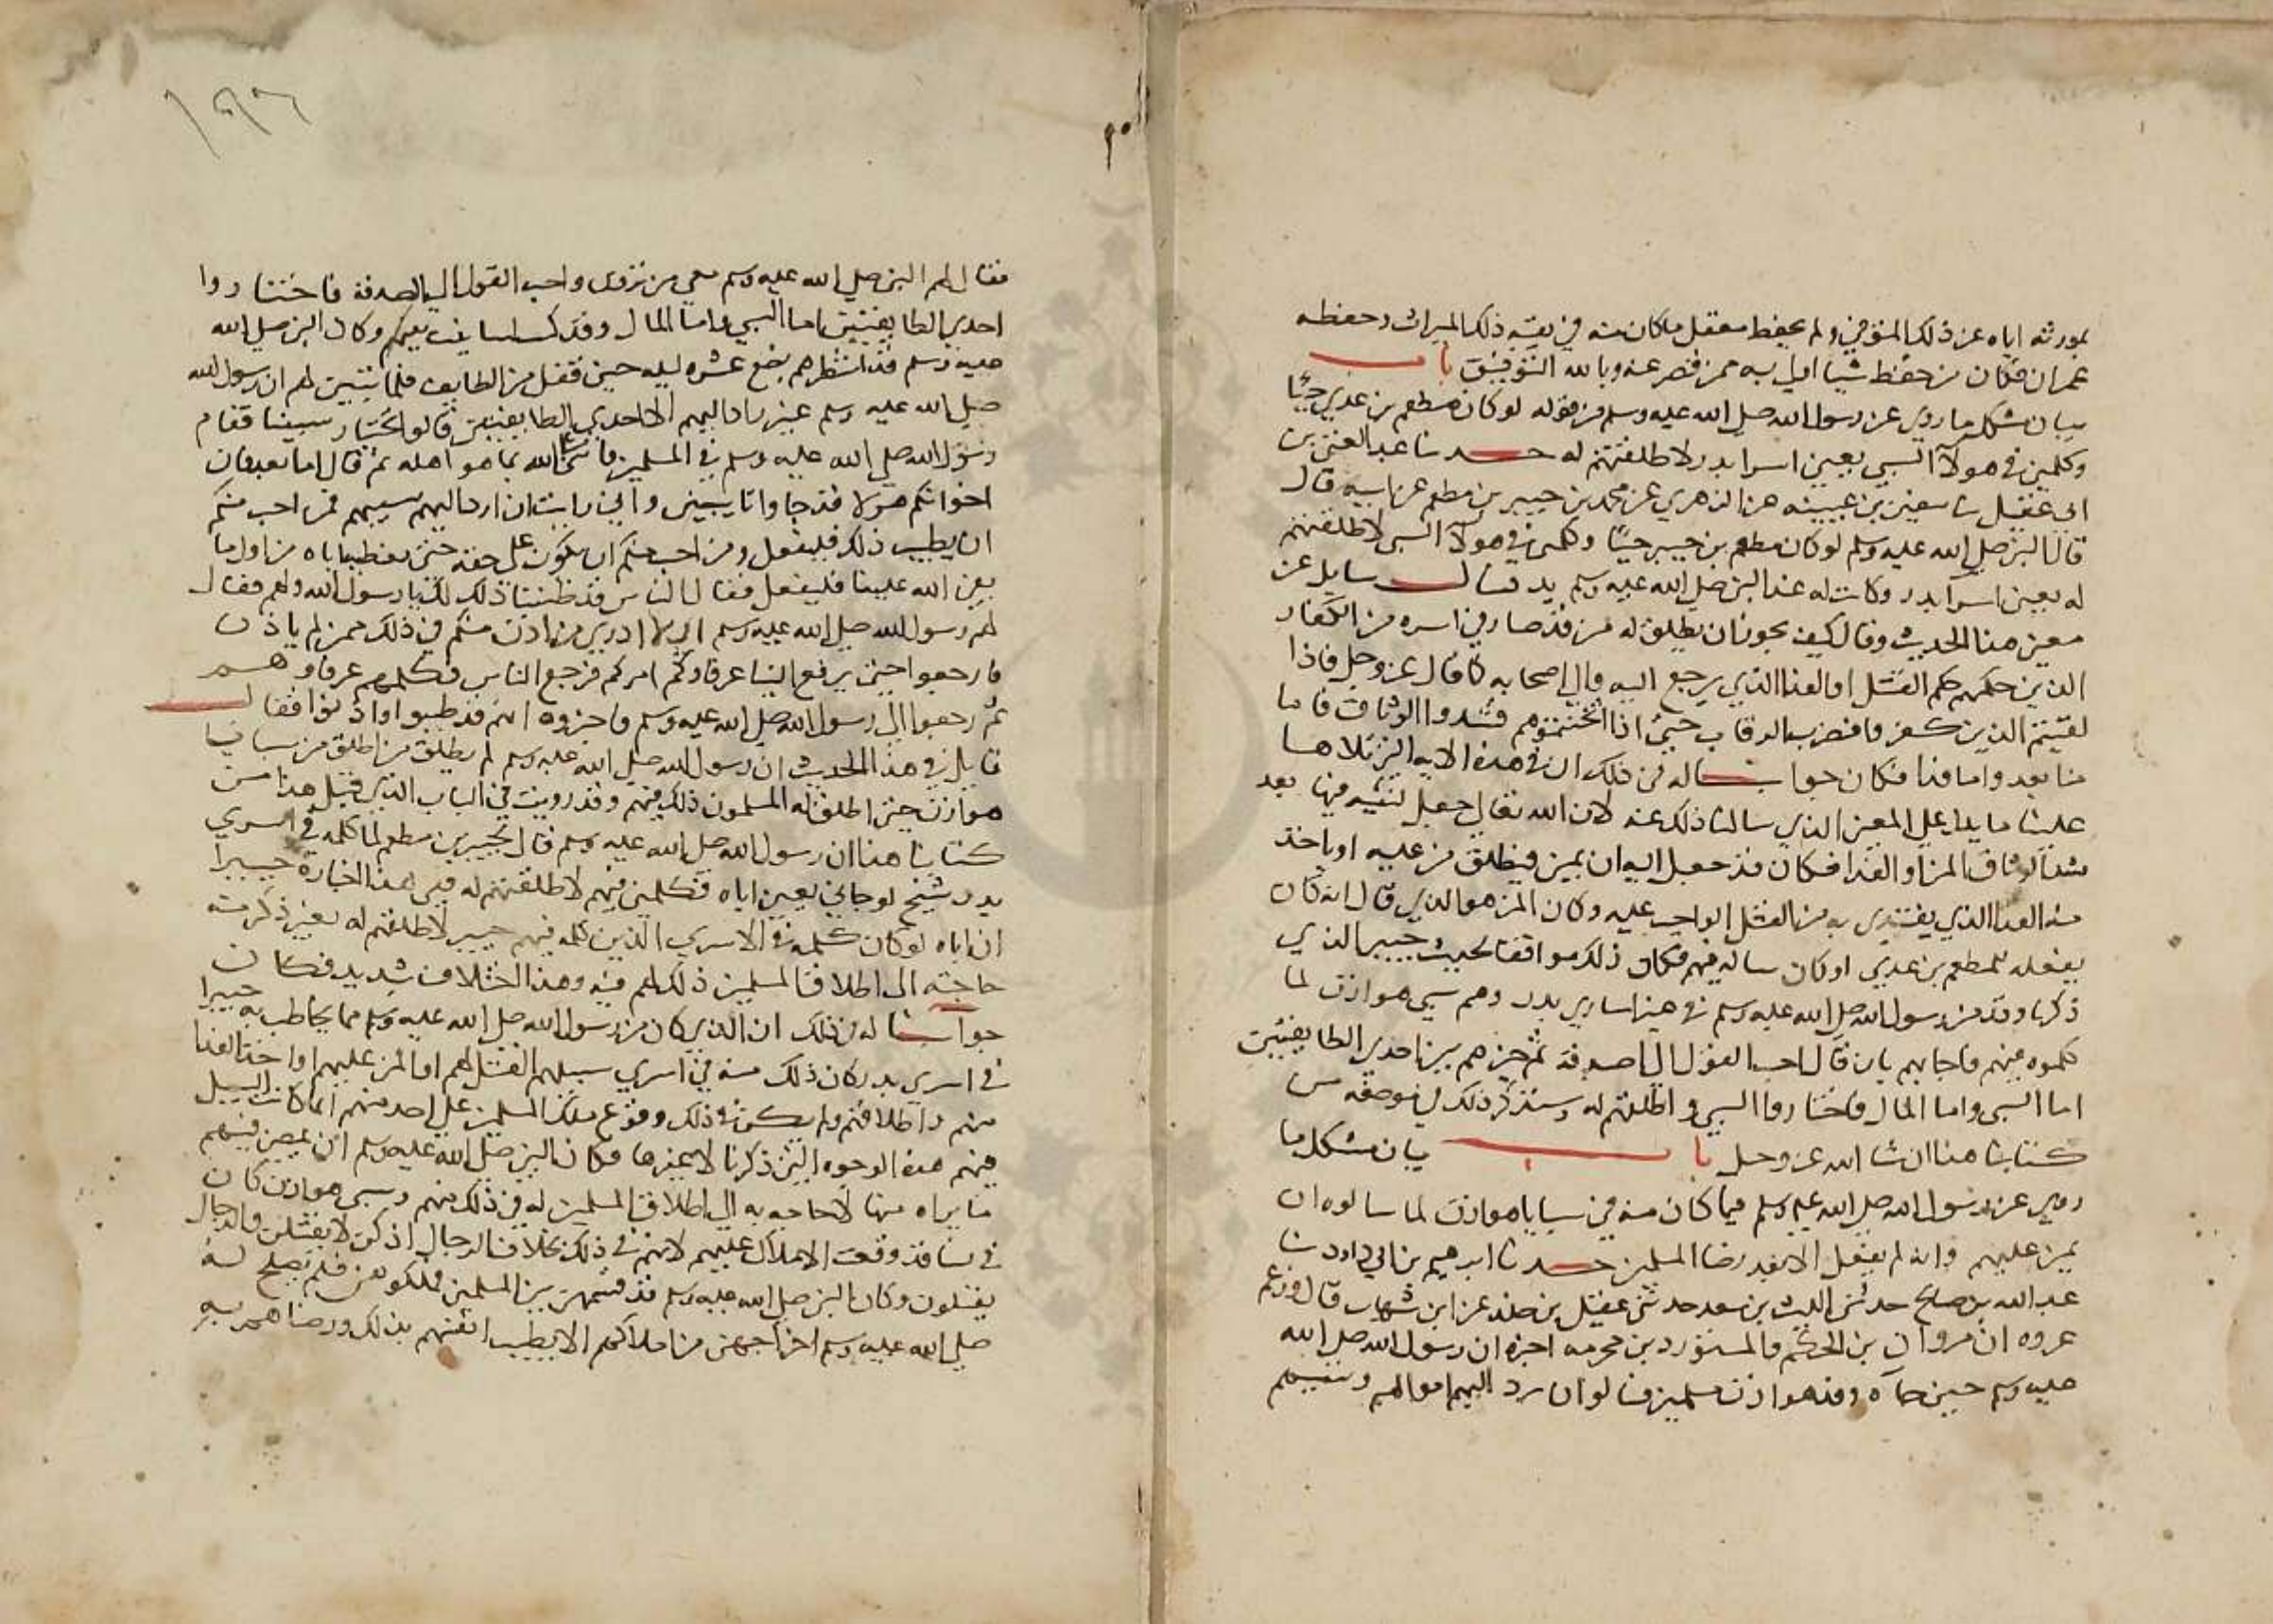 بمورثه اياه عن ذلك المتوفى ولم يحفظ معقل ما كان منه في بقية ذلك الميراث وحفظه
عمران فكان من حفظ شيا اولى به ممن قصر عنه وبالله التوفيق باب
بيان مشكل ما روي عن رسول الله صلى الله عليه وسلم من قوله لو كان مطعم بن عدي حيا
وكلمني في هولآ السبي يعني اسرا بدر لاطلقتهم له حدثنا عبد الغني بن
ابي عقيل ثنا سفين بن عيينه عن الزهري عن محمد بن جبير بن مطعم عن ابيه قال
قال النبي صلى الله عليه وسلم لو كان مطعم بن جبير حيًا وكلمني في هولآ السبي لاطلقتهم
له يعني اسرآ بدر وكانت له عند النبي صلى الله عليه وسلم يد فسال سايل عن
معنى هذا الحديث وقال كيف يجوز ان يطلق له من قد صار في اسره من الكفار
الذين حكمهم حكم القتل او الفدا الذي يرجع اليه والى اصحابه كما قال عز وجل فاذا
لقيتم الذين كفروا فضرب الرقاب حتى اذا اثخنتموهم فشدوا الوثاق فاما
منا بعد واما فدا فكان جوابنا له في ذلك ان في هذه الايه التي تلاها
علينا ما يدل على المعنى الذي سالنا ذلك عنه لان الله تعالى جعل لنبيه فيها بعد
شد الوثاق المن او الفدا فكان قد جعل اليه ان يمن فيطلق من عليه او ياخذ
منه الفدا الذي يفتدي به من القتل الواجب عليه وكان المن هو الذي قال انه كان
يفعله للمطعم بن عدي لو كان ساله فيهم فكان ذلك موافقا لحديث جبير الذي
ذكرنا وقد من رسول الله صلى الله عليه وسلم في غير اسارى بدر وهم سبي هوازن لما
كلموه فيهم فاجابهم بان قال احب القول الي اصدقه ثم خيرهم بين احدى الطايفتين
اما السبي واما المال فاختاروا السبي واطلقهم له وسنذكر ذلك في موضعه من
كتابنا هذا ان شا الله عز وجل باب بيان مشكل ما
روي عن رسول الله صلى الله عليه وسلم فيما كان منه في سبايا هوازن لما سالوه ان
يمن عليهم وانه لم يفعل الا بعد رضا المسلمين حدثنا ابرهيم بن ابي داود ثنا
عبد الله بن صالح حدثني الليث بن سعد حدثني عقيل بن خلد عن ابن شهاب قال وزعم
عروه ان مروان بن الحكم والمستورد بن مخرمه اخبره ان رسول الله صلى الله
عليه وسلم حين جآه وفد هوازن مسلمين فسالوا ان يرد اليهم اموالهم وسبيهم
١٩٦
فقال لهم النبي صلى الله عليه وسلم معي من ترون واحب القول الي اصدقه فاختاروا
احدى الطايفتين اما السبي واما المال وقد كنت استانيت بهم وكان النبي صلى الله
عليه وسلم قد انتظرهم بضع عشره ليله حين قفل من الطايف فلما تبين لهم ان رسول الله
صلى الله عليه وسلم غير راد اليهم الا احدى الطايفتين قالوا نختار سبينا فقام
رسول الله صلى الله عليه وسلم في المسلمين فاثنى على الله بما هو اهله ثم قال اما بعد فان
اخوانكم هولا قد جاوا تايبين واني رايت ان ارد اليهم سبيهم فمن احب منكم
ان يطيب ذلك فليفعل ومن احب منكم ان يكون على حقه حتى نعطيه اياه من اول ما
يفئ الله علينا فليفعل فقال الناس قد طيبنا ذلك لك يا رسول الله ولهم فقال
لهم رسول الله صلى الله عليه وسلم اني لا ادري من اذن منكم في ذلك ممن لم ياذن
فارجعوا حتى يرفع الينا عرفاوكم امركم فرجع الناس فكلمهم عرفاوهم
ثم رجعوا الى رسول الله صلى الله عليه وسلم فاخبروه انهم قد طيبوا واذنوا فقال
قايل في هذا الحديث ان رسول الله صلى الله عليه وسلم لم يطلق من اطلق من سبايا
هوازن حتى اطلق له المسلمون ذلك فيهم وقد رويت في الباب الذي قبل هذا من
كتابنا هذا ان رسول الله صلى الله عليه وسلم قال لجبير بن مطعم لما كلمه في اسرى
بدر شيخ لو جاني يعني اياه فكلمني فيهم لاطلقتهم له ففي هذا اخباره جبيرا
ان اباه لو كان كلمه في الاسرى الذين كلمه فيهم جبير لاطلقهم له بغير ذكر منه
حاجته الى اطلاق المسلمين ذلك لهم فيه وهذا اختلاف شديد فكان
جوابنا له في ذلك ان الذي كان من رسول الله صلى الله عليه وسلم مما يخاطب به جبيرا
في اسرى بدر كان ذلك منه في اسرى سبيلهم القتل لهم او المن عليهم او اخذ الفدا
منهم واطلاقهم ولم يكن في ذلك وقوع ملك المسلمين على احد منهم انما كانت السبيل
فيهم هذه الوجوه التي ذكرنا لا غيرها فكان النبي صلى الله عليه وسلم ان يمضي فيهم
ما يراه منها لا حاجه به الى اطلاق المسلمين له في ذلك منهم وسبي هوازن كان
في نسا قد وقعت الاملاك عليهم لانهم في ذلك بخلاف الرجال اذ كن لا يقتلن والرجال
يقتلون وكان النبي صلى الله عليه وسلم قد قسمهن بين المسلمين فملكوهن فلم يصلح له
صلى الله عليه وسلم اخراجهن من املاكهم الا بطيب انفسهم بذلك ورضاهم به